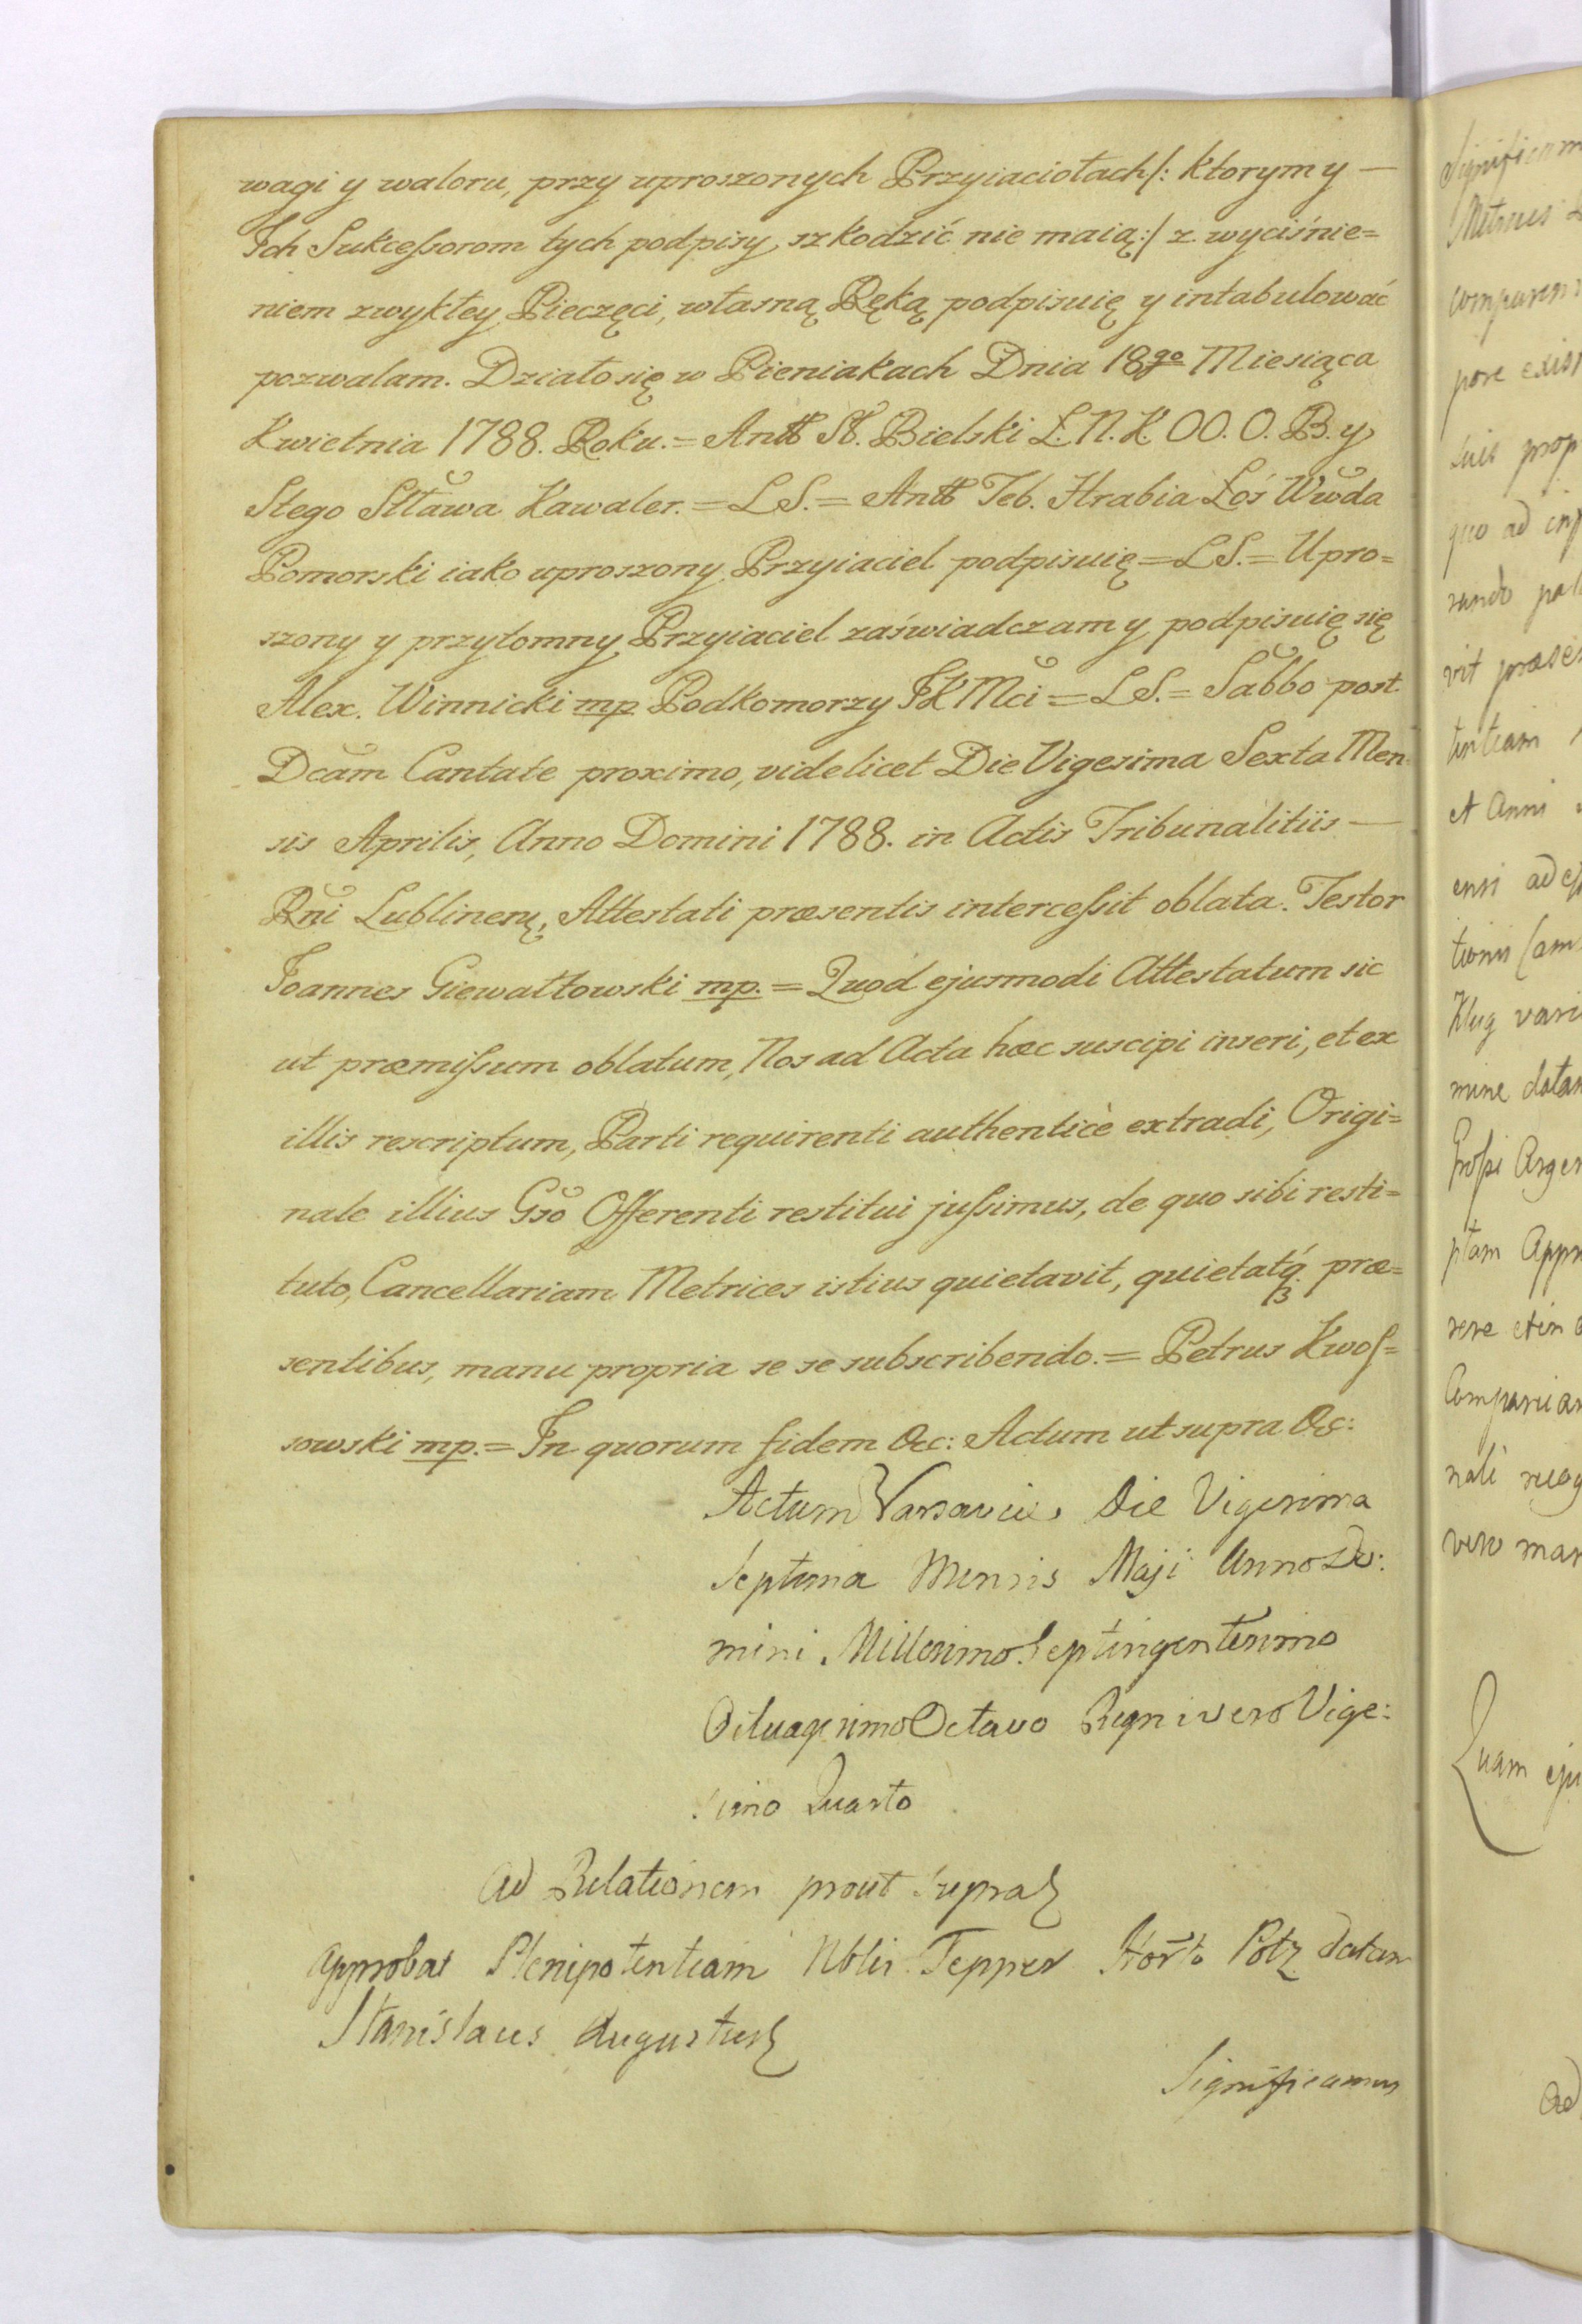 wagi y waloru, przy uproszonych Przyiaciołach/: ktorym y —
Ich Sukcessorom tych podpisy, szkodzić nie maią:/ z wyciśnie=
niem zwykłey Pieczęci, własną Ręką podpisuię y intabulować
pozwalam. Działo się w Pieniakach Dnia 18go Miesiąca
Kwietnia 1788. Roku. = Antt St. Bielski Ł. N. K. OO. O. B. y
Stego Sttawa Kawaler. = LS. = Antt Teb. Hrabia Łoś Wwda
Pomorski iako uproszony Przyiaciel podpisuię = LS. = Upro=
szony y przytomny Przyiaciel zaświadczam y podpisuię się
Alex. Winnicki mp Podkomorzy JKMci = LS. = Sabbo post
Dcam Cantate proximo, videlicet Die Vigesima Sexta Men
sis Aprilis, Anno Domini 1788. in Actis Tribunalitiis —
Rni Lublinens, Attestati præsentis intercessit oblata. Testor
Joannes Giewałtowski mp. = Quod ejusmodi Attestatum sic
ut præmissum oblatum, Nos ad Acta hæc suscipi inseri, et ex
illis rescriptum, Parti requirenti authenticè extradi, Origi=
nale illius Gso Offerenti restitui jussimus, de quo sibi resti=
tuto, Cancellariam Metrices istius quietavit, quietatq præ=
sentibus, manu propria se se subscribendo. = Petrus Kwos=
sowski mp. = In quorum fidem &c: Actum ut supra &c:
Actum Varsaviæ Die Vigesima
Septima Mensis Maji Anno Do:
mini Millesimo Septingentesimo
Octuagesimo Octavo Regni vero Vige:
simo Quarto
Ad Relationem prout supra
Approbat Plenipotentiam Nblis Tepper Potz datam
Stanislaus Augustus
Significamus
Significam
comparens
pore exist
suis prop
quo ad
vit præse
et Anni
ensi ad
Klug vari
mine datam
Arger
ptam Appr
Comparian
vero man
Quam eju
Ad